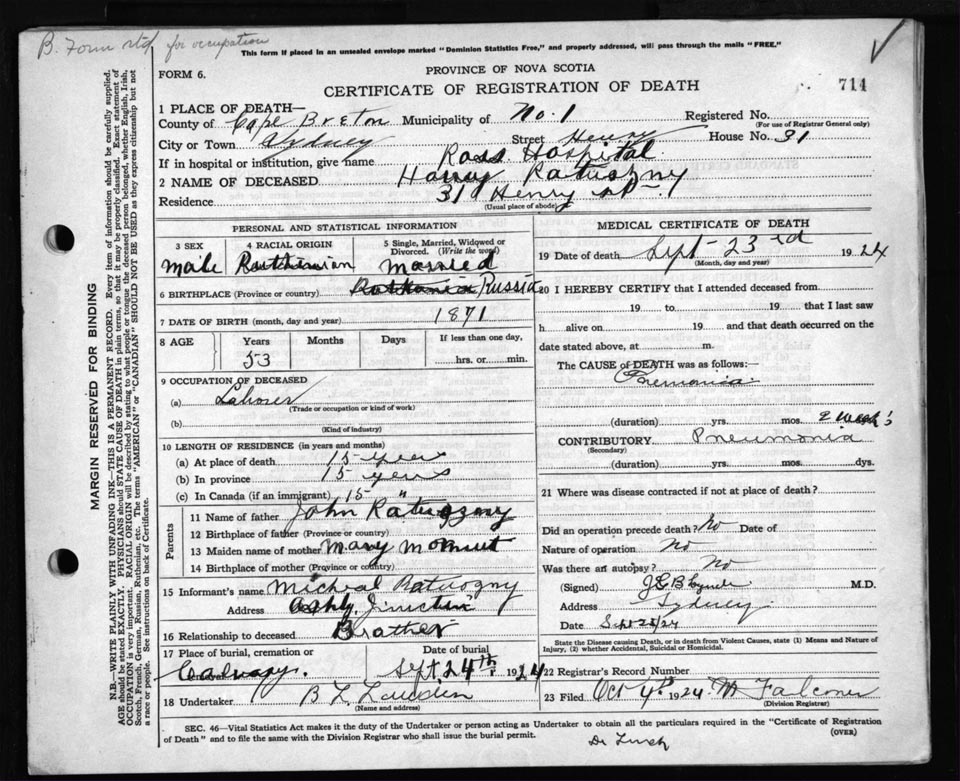 B. Form rtd, for occupation
This form if placed in an unsealed envelope marked "Dominion Statistics Free," and properly addressed, will pass through the mails "FREE."
PROVINCE OF NOVA SCOTIA
FORM 6.
CERTIFICATE OF REGISTRATION OF DEATH
714
MARGIN RESERVED FOR BINDING
N.B.—WRITE PLAINLY WITH UNFADING INK—THIS IS A PERMANENT RECORD. Every item of information should be carefully supplied.
AGE should be stated EXACTLY. PHYSICIANS should STATE CAUSE OF DEATH in plain terms, so that it may be properly classified. Exact statement of
OCCUPATION is very important. RACIAL ORIGIN will be described by stating to what people or tongue the deceased person belonged, whether English, Irish,
Scotch, French, German, Russian, Ruthenian, etc. The terms "AMERICAN" or "CANADIAN" SHOULD NOT BE USED as they express citizenship but not
a race or people. See instructions on back of Certificate.
1 PLACE OF DEATH—
County of Cape Breton Municipality of No. 1 Registered No.
(For use of Registrar General only)
City or Town Sydney Street Henry House No. 31
If in hospital or institution, give name Ross Hospital
2 NAME OF DECEASED Harry Ratuszny
Residence 31 Henry St
(Usual place of abode)
PERSONAL AND STATISTICAL INFORMATION
3 SEX
Male
4 RACIAL ORIGIN
Ruthenian
5 Single, Married, Widowed or Divorced. (Write the word)
Married
6 BIRTHPLACE (Province or country) Russia
7 DATE OF BIRTH (month, day and year) 1871
8 AGE Years Months Days If less than one day,
53 hrs. or min.
9 OCCUPATION OF DECEASED
(a) Laborer
(Trade or occupation or kind of work)
(b)
(Kind of industry)
10 LENGTH OF RESIDENCE (in years and months)
(a) At place of death 15 years
(b) In province 15 years
(c) In Canada (if an immigrant) 15 "
Parents
11 Name of father John Ratuszny
12 Birthplace of father (Province or country)
13 Maiden name of mother Mary
14 Birthplace of mother (Province or country)
15 Informant's name Micheal Ratuozny
Address Ashby Junction
16 Relationship to deceased Brother
17 Place of burial, cremation or
Calvary.
Date of burial
Sept. 24th 1924
18 Undertaker B L
(Name and address)
MEDICAL CERTIFICATE OF DEATH
19 Date of death Sept 23rd 1924
(Month, day and year)
20 I HEREBY CERTIFY that I attended deceased from
19 to 19 that I last saw
h alive on 19 and that death occurred on
date stated above, at m.
The CAUSE of DEATH was as follows:
Pnemonia
(duration) yrs. mos. 2 weeks
CONTRIBUTORY Pneumonia
(Secondary)
(duration) yrs. mos. dys.
21 Where was disease contracted if not at place of death?
Did an operation precede death? No Date of
Nature of operation No
Was there an autopsy? No
(Signed) J G B Lynch M.D.
Address Sydney
Date Sept 25/24
State the Disease causing Death, or in death from Violent Causes, state (1) Means and Nature of
Injury, (2) whether Accidental, Suicidal or Homicidal.
22 Registrar's Record Number
23 Filed Oct 4th 1924 M Falconer
(Division Registrar)
SEC. 46—Vital Statistics Act makes it the duty of the Undertaker or person acting as Undertaker to obtain all the particulars required in the "Certificate of Registration
of Death" and to file the same with the Division Registrar who shall issue the burial permit.
(OVER)
Dr Lynch